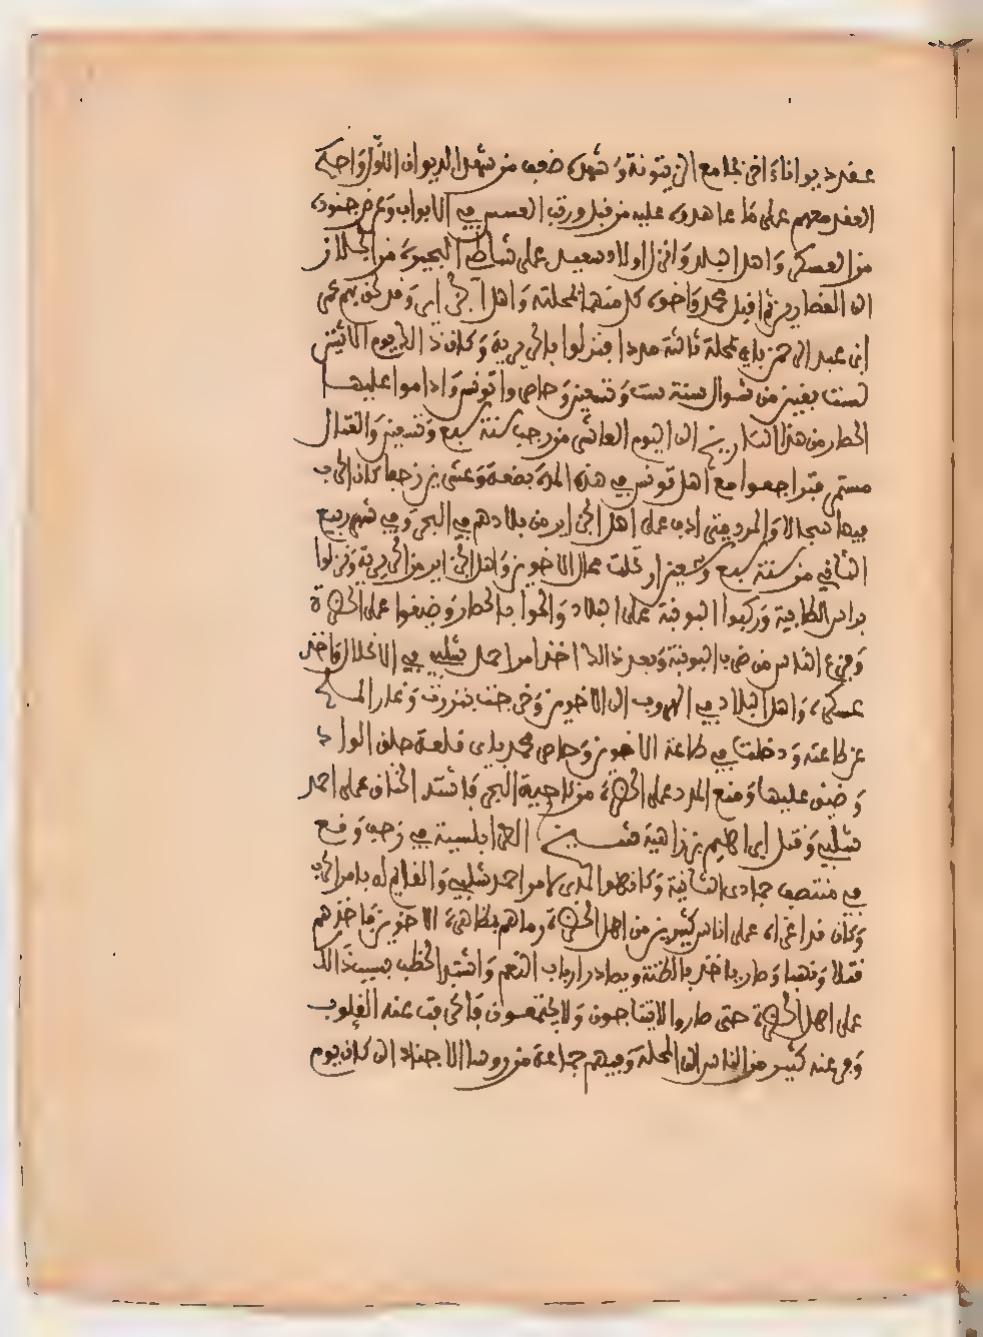 عقد ديوانا اخر بجامع الزيتونة وشهده ضعف من شهد الديوان الاول واحكم
العقد معهم على ما عاهدوه عليه من قبل ورتب العسس في الابواب وعرض جنوده
من العسكر واهل البلد وانزل اولاد سعيد على شاطئ البحيرة من الجلاز
الى القصارين ثم اقبل محمد واخوه كل منهما بمحلته واهل الجزائر وقد لحق بهم عمر
ابن عبد الرحمن باي بمحلة ثالثة مددا فنزلوا بالحريرية وكان ذلك يوم الاثنين
لست بقين من شوال سنة ست وتسعين وحاصروا تونس واداموا عليها
الحصار من هذا التاريخ الى اليوم العاشر من رجب سنة سبع وتسعين والقتال
مستمر فتراجعوا مع اهل تونس في هذه المدة بضعة وعشرين زحفا كان الحرب
فيها سجالا والمدد يترادف على اهل الجزاير من بلادهم في البحر وفي شهر ربيع
الثاني من سنة سبع وتسعين ارتحلت محال الاخوين واهل الجزاير من الحريرية ونزلوا
براس الطابية وركبوا البونبة على البلاد والحوا بالحصار وضيقوا على الحاضرة
وجزع الناس من ضرب البونبة وبعد ذلك اخذ امر احمد شلبي في الانحلال واخذ
عسكره واهل البلاد في الهروب الى الاخوين وخرجت بنزرت وغار الملح
عن طاعته ودخلتا في طاعة الاخوين وحاصر محمد باي قلعة حلق الواد
وضيق عليها ومنع المدد على الحاضرة من ناحية البحر فاشتد الخناق على احمد
شلبي وقتل ابراهيم بن زاهية شيخ الطرابلسية في زحف وقع
في منتصف جمادى الثانية وكان هو المدير لامر احمد شلبي والقايم له بامر الحرب
وكان قد اغراه على اناس كثيرين من اهل الحاضرة رماهم بمظاهرة الاخوين فاخذهم
قتلا ونهبا وصار ياخذ بالظنة ويصادر ارباب النعم واشتد الخطب بسبب ذلك
على اهل الحاضرة حتى صاروا لا يتناجون ولا يجتمعون فانحرفت عنه القلوب
وفر عنه كثير من الناس الى المحلة وفيهم جماعة من روسا الاجناد الى كان يوم